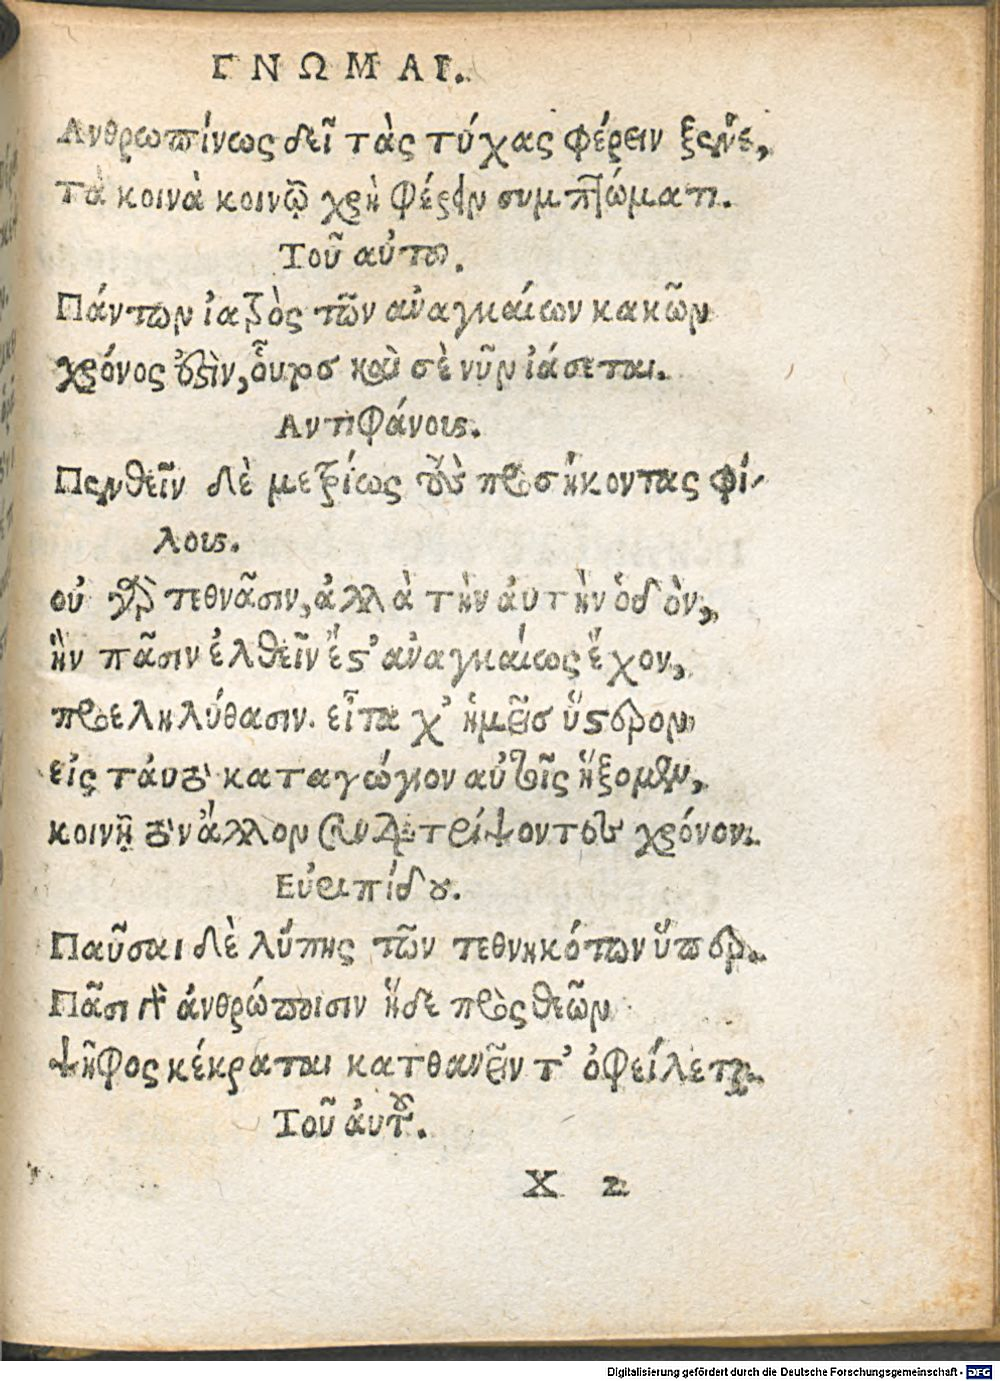 ΓΝΩΜΑΙ.
Ανθρωπίνως δεῖ τὰς τύχας φέρειν ξένε,
τὰ κοινὰ κοινῷ χρὴ φέρειν συμπτώματι.
Τοῦ αὐτοῦ.
Πάντων ἰατρὸς τῶν ἀναγκαίων κακῶν
χρόνος ὅστιν, οὗτος καὶ σὲ νῦν ἰάσεται.
Αντιφάνους.
Πενθεῖν δὲ μετρίως τοὺς προσήκοντας φί-
λους.
οὐ γὰρ τεθνᾶσιν, ἀλλὰ τὴν ἀυτὴν ὁδὸν,
ἣν πᾶσιν ἐλθεῖν ἔστ' ἀναγκαίως ἔχον,
προεληλύθασιν. εἶτα χ' ἡμεῖς ὕστερον
εἰς τἀυτὸ καταγώγιον αὐτοῖς ἥξομεν,
κοινῇ τὸν ἄλλον συνδιατρίψοντες χρόνον.
Εὐριπίδου.
Παῦσαι δὲ λύπης τῶν τεθνηκότων ὕπερ.
Πᾶσι γὰρ ἀνθρώποισιν ἥδε πρὸς θεῶν
ψῆφος κέκραται κατθανεῖν τ' ὀφείλεται.
Τοῦ ἀυτοῦ.
X 2
Digitalisierung gefördert durch die Deutsche Forschungsgemeinschaft - DFG